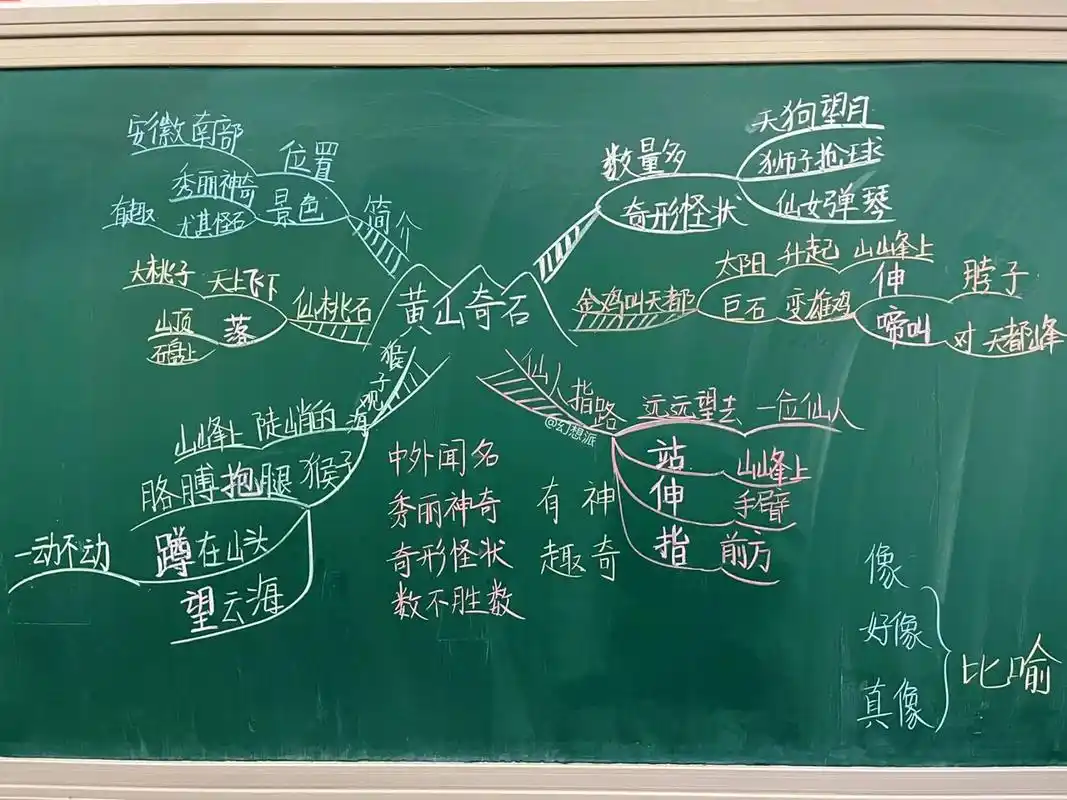 黄山奇石
简介
位置
安徽南部
景色
秀丽神奇
尤其怪石
有趣
仙桃石
天上飞下
大桃子
落
山顶
石盘上
猴子观海
山峰上 陡峭的
胳膊抱腿 猴子
蹲在山头
一动不动
望云海
数量多
奇形怪状
天狗望月
狮子抢球
仙女弹琴
金鸡叫天都
太阳 升起 山峰上
巨石 变雄鸡
伸 脖子
啼叫 对天都峰
仙人指路
@幻想派
远远望去 一位仙人
站 山峰上
伸 手臂
指 前方
中外闻名
秀丽神奇
奇形怪状
数不胜数
有神
趣奇
像
好像
真像
比喻